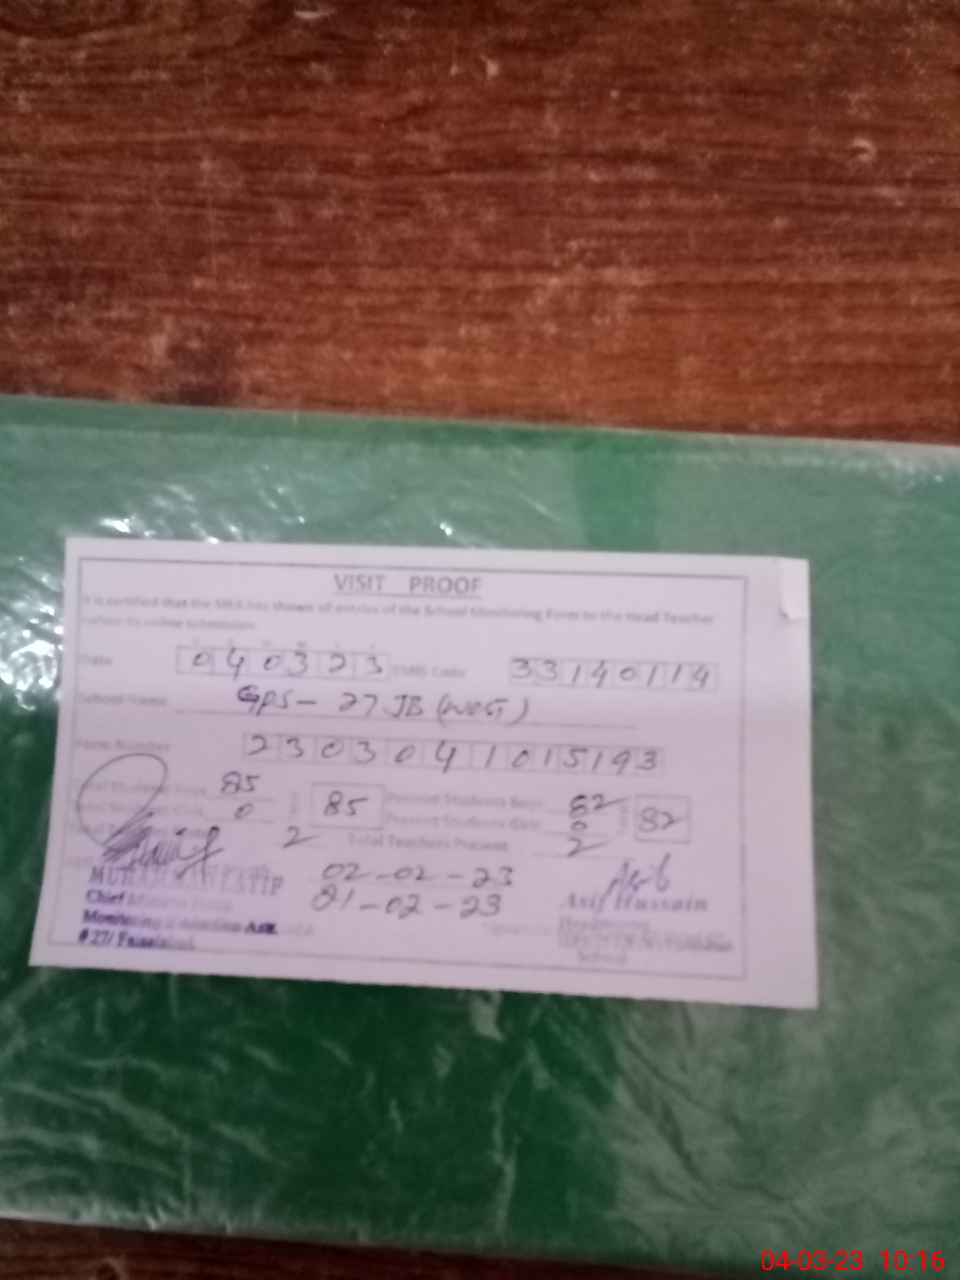 VISIT PROOF
It is certified that the MEA has shown of entries of the School Monitoring Form to the Head Teacher
before its online submission.
Date 040323 EMIS Code 33140114
School Name GPS - 27 JB (West)
Form Number 2303041015193
85 85 Present Students Boys 82 82
0 Present Students Girls 0
2 Total Teachers Present 2
02-02-23
21-02-23
Asif Hussain
Chief
Monitoring
# 27/ Faisalabad
School
04-03-23 10:16